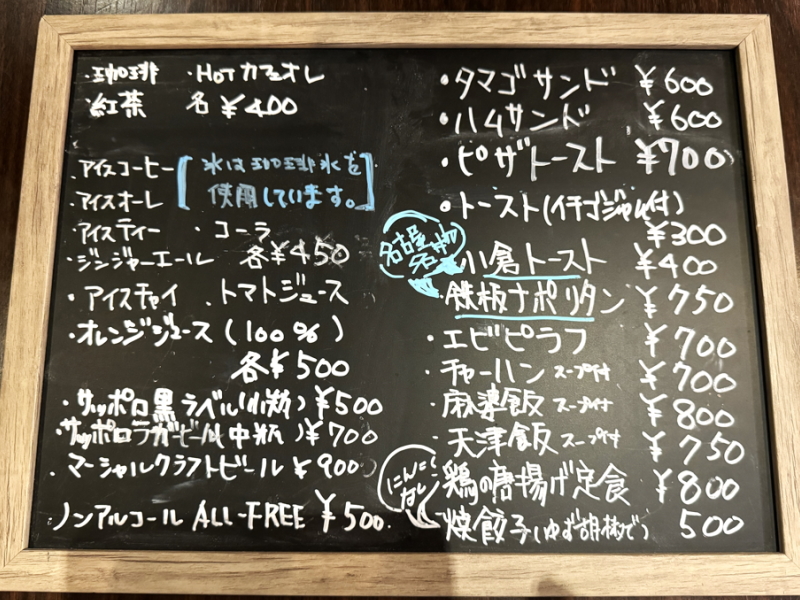 ・珈琲 ・HOTカフェオレ
・紅茶 各¥400
・アイスコーヒー
・アイスオーレ
[氷は珈琲氷を
使用しています。]
・アイスティー ・コーラ
・ジンジャーエール 各¥450
・アイスチャイ ・トマトジュース
・オレンジジュース(100%)
各¥500
・サッポロ黒ラベル(小瓶)¥500
・サッポロラガービール(中瓶)¥700
・マーシャルクラフトビール ¥900
ノンアルコール ALL-FREE ¥500
・タマゴサンド ¥600
・ハムサンド ¥600
・ピザトースト ¥700
・トースト(イチゴジャム付)
¥300
名古屋
名物
・小倉トースト ¥400
・鉄板ナポリタン ¥750
・エビピラフ ¥700
・チャーハン スープ付 ¥700
・麻婆飯 スープ付 ¥800
・天津飯 スープ付 ¥750
にんにく
なし
・鶏の唐揚げ定食 ¥800
・焼餃子(ゆず胡椒で) 500